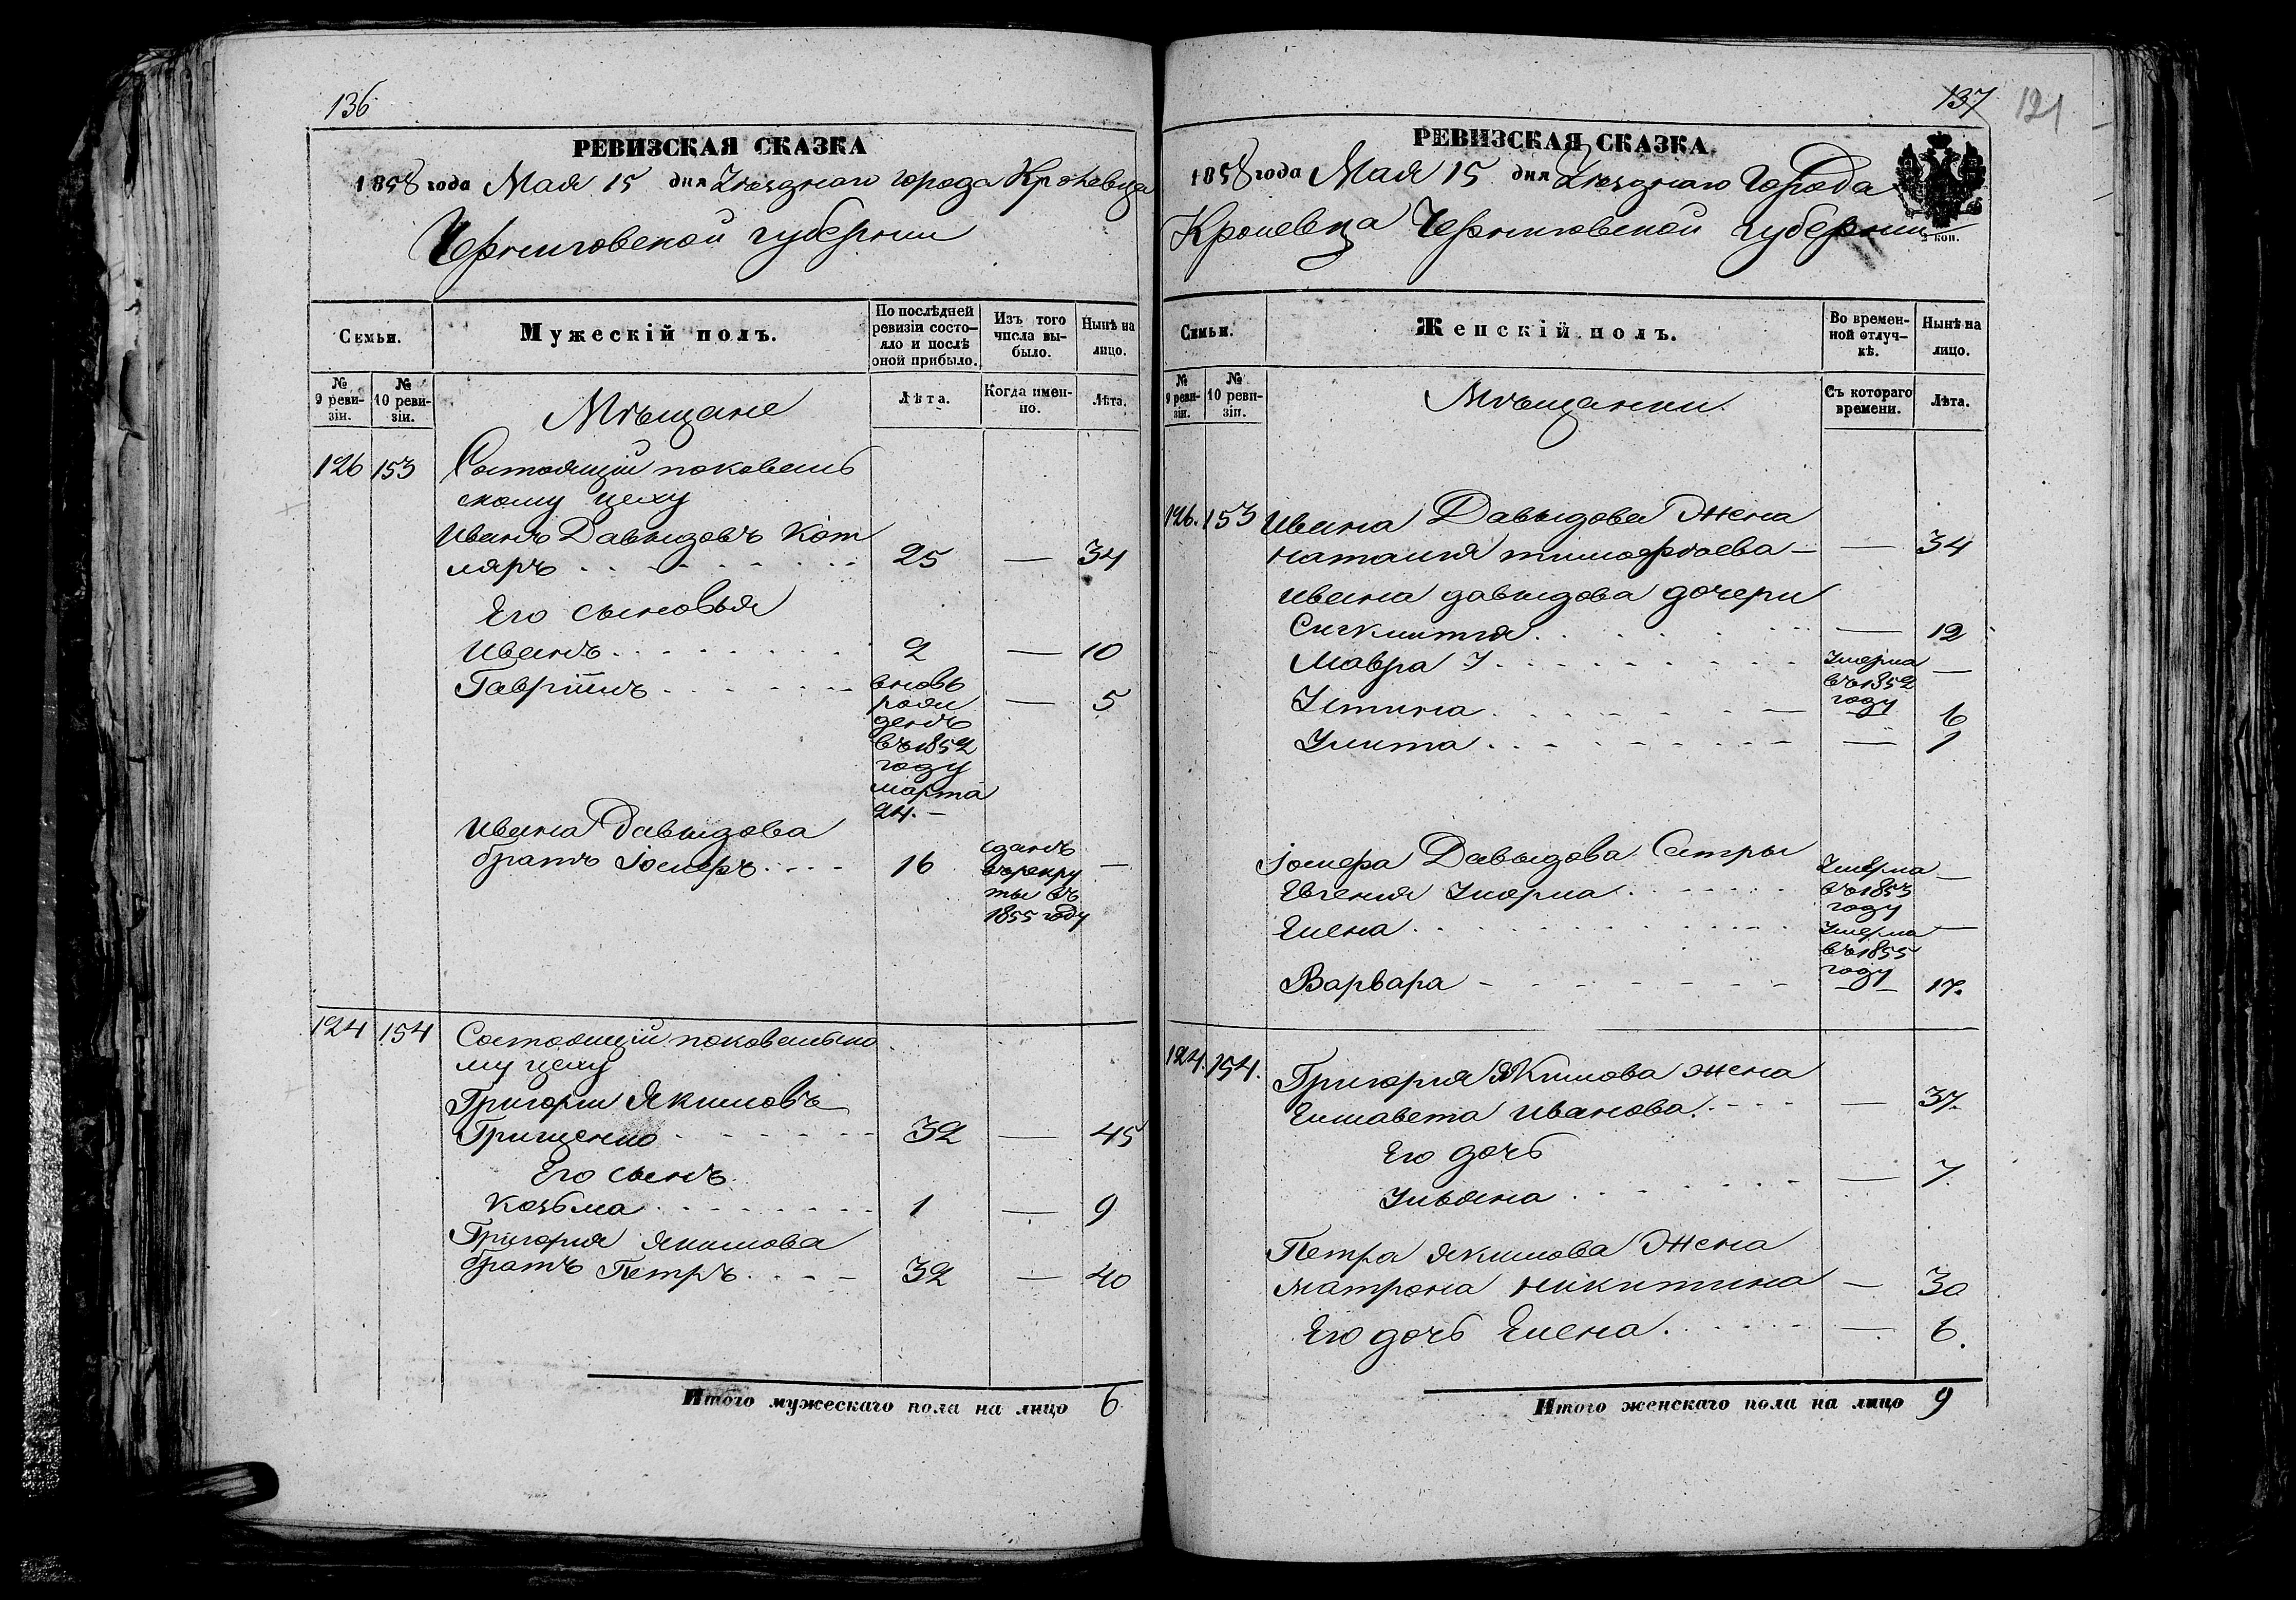 136
РЕВИЗСКАЯ СКАЗКА
1858 года Мая 15 дня Уезднаго города Кролевца
Черниговской губернии
Семьи.
Мужескій полъ.
По послѣдней ревизіи состояло и послѣ оной прибыло.
Изъ того числа выбыло.
Нынѣ на лицо.
№ 9 ревизіи.
№ 10 ревизіи.
Мѣщане
Лѣта.
Когда именно.
Лѣта.
126 153 Состоящій поковаль
скому цеху
Иванъ Давыдовъ Кот
ляръ 25 — 34
Его сыновья
Иванъ 2 — 10
Гавріилъ вновь — 5
рож
денъ
въ 1852
году
марта
24. —
Ивана Давыдова
братъ Іосифъ 16 сданъ —
въ рекру
ты въ
1855 году
124 154 Состоящій поковальско
му цеху
Григорій Якимовъ
Грищенко 32 — 45
Его сынъ
Козьма 1 — 9
Григорія Якимова
братъ Петръ 32 — 40
Итого мужескаго пола на лицо 6
137 121
РЕВИЗСКАЯ СКАЗКА
1858 года Мая 15 дня Уезднаго Города
Кролевца Черниговской Губернии
2 коп.
Семьи.
Женскій полъ.
Во временной отлучкѣ.
Нынѣ на лицо.
№ 9 ревизіи.
№ 10 ревизіи.
Мѣщанки.
Съ котораго времени.
Лѣта.
126. 153 Ивана Давыдова Жена
Наталия тимофѣева — — 34
Ивана давыдова дочери
— 12
Мавра Умерла —
въ 1852
году
Устина — 6
Улита — 1
Іосифа Давыдова Сестры
Евгения Умерла Умерла —
въ 1853
году
Елена Умерла —
въ 1855
году
Варвара — 17.
124. 154. Григория Якимова жена
Елисавета Иванова — 37.
Его дочь
Ульяна — 7
Петра Якимова Жена
Матрона Никитина — 30
Его дочь Елена — 6.
Итого женскаго пола на лицо 9